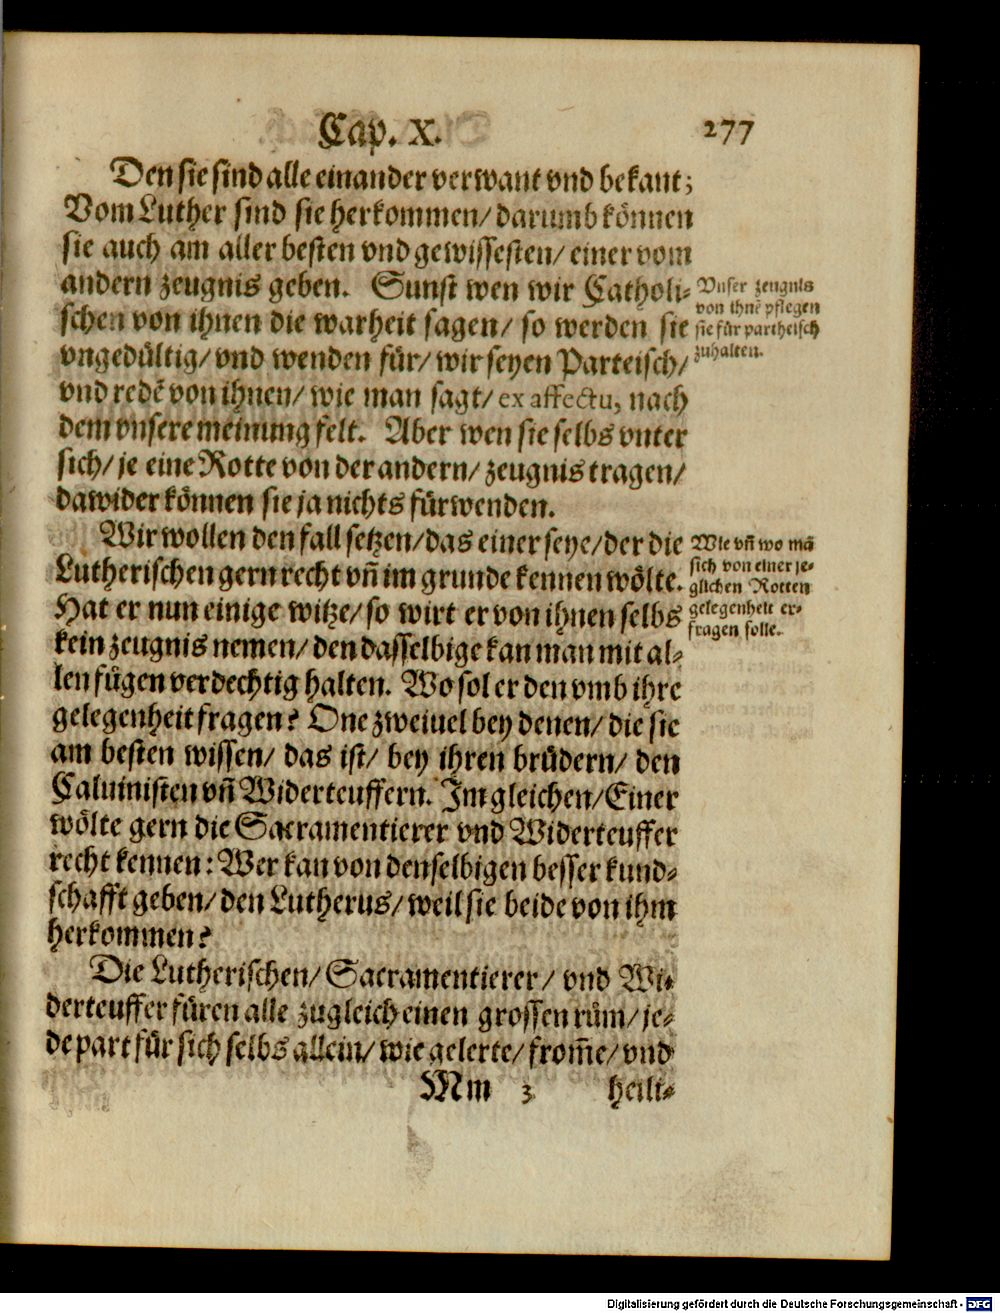 Cap. X. 277
Den sie sind alle einander verwant vnd bekant;
Vom Luther sind sie herkommen/ darumb können
sie auch am aller besten vnd gewissesten/ einer vom
andern zeugnis geben. Sunst wen wir Catholi-
schen von ihnen die warheit sagen/ so werden sie
vngedültig/ vnd wenden für/ wir seyen Parteisch/
vnd redē von ihnen/ wie man sagt/ ex affectu, nach
dem vnsere meinung felt. Aber wen sie selbs vnter
sich/ je eine Rotte von der andern/ zeugnis tragen/
dawider können sie ja nichts fürwenden.
Vnser zeugnis
von ihnē pflegen
sie für partheisch
zuhalten.
Wir wollen den fall setzen/ das einer seye/ der die
Lutherischen gern recht vñ im grunde kennen wölte.
Hat er nun einige witze/ so wirt er von ihnen selbs
kein zeugnis nemen/ den dasselbige kan man mit al-
len fügen verdechtig halten. Wo sol er den vmb ihre
gelegenheit fragen? One zweiuel bey denen/ die sie
am besten wissen/ das ist/ bey ihren brüdern/ den
Caluinisten vñ Widerteuffern. Im gleichen/ Einer
wölte gern die Sacramentierer vnd Widerteuffer
recht kennen: Wer kan von denselbigen besser kund-
schafft geben/ den Lutherus/ weil sie beide von ihm
herkommen?
Wie vñ wo mā
sich von einer je-
glichen Rotten
gelegenheit er-
fragen solle.
Die Lutherischen/ Sacramentierer/ vnd Wi-
derteuffer füren alle zugleich einen grossen rüm/ je-
de part für sich selbs allein/ wie gelerte/ from̄e/ vnd
Mm 3 heili-
Digitalisierung gefördert durch die Deutsche Forschungsgemeinschaft - DFG